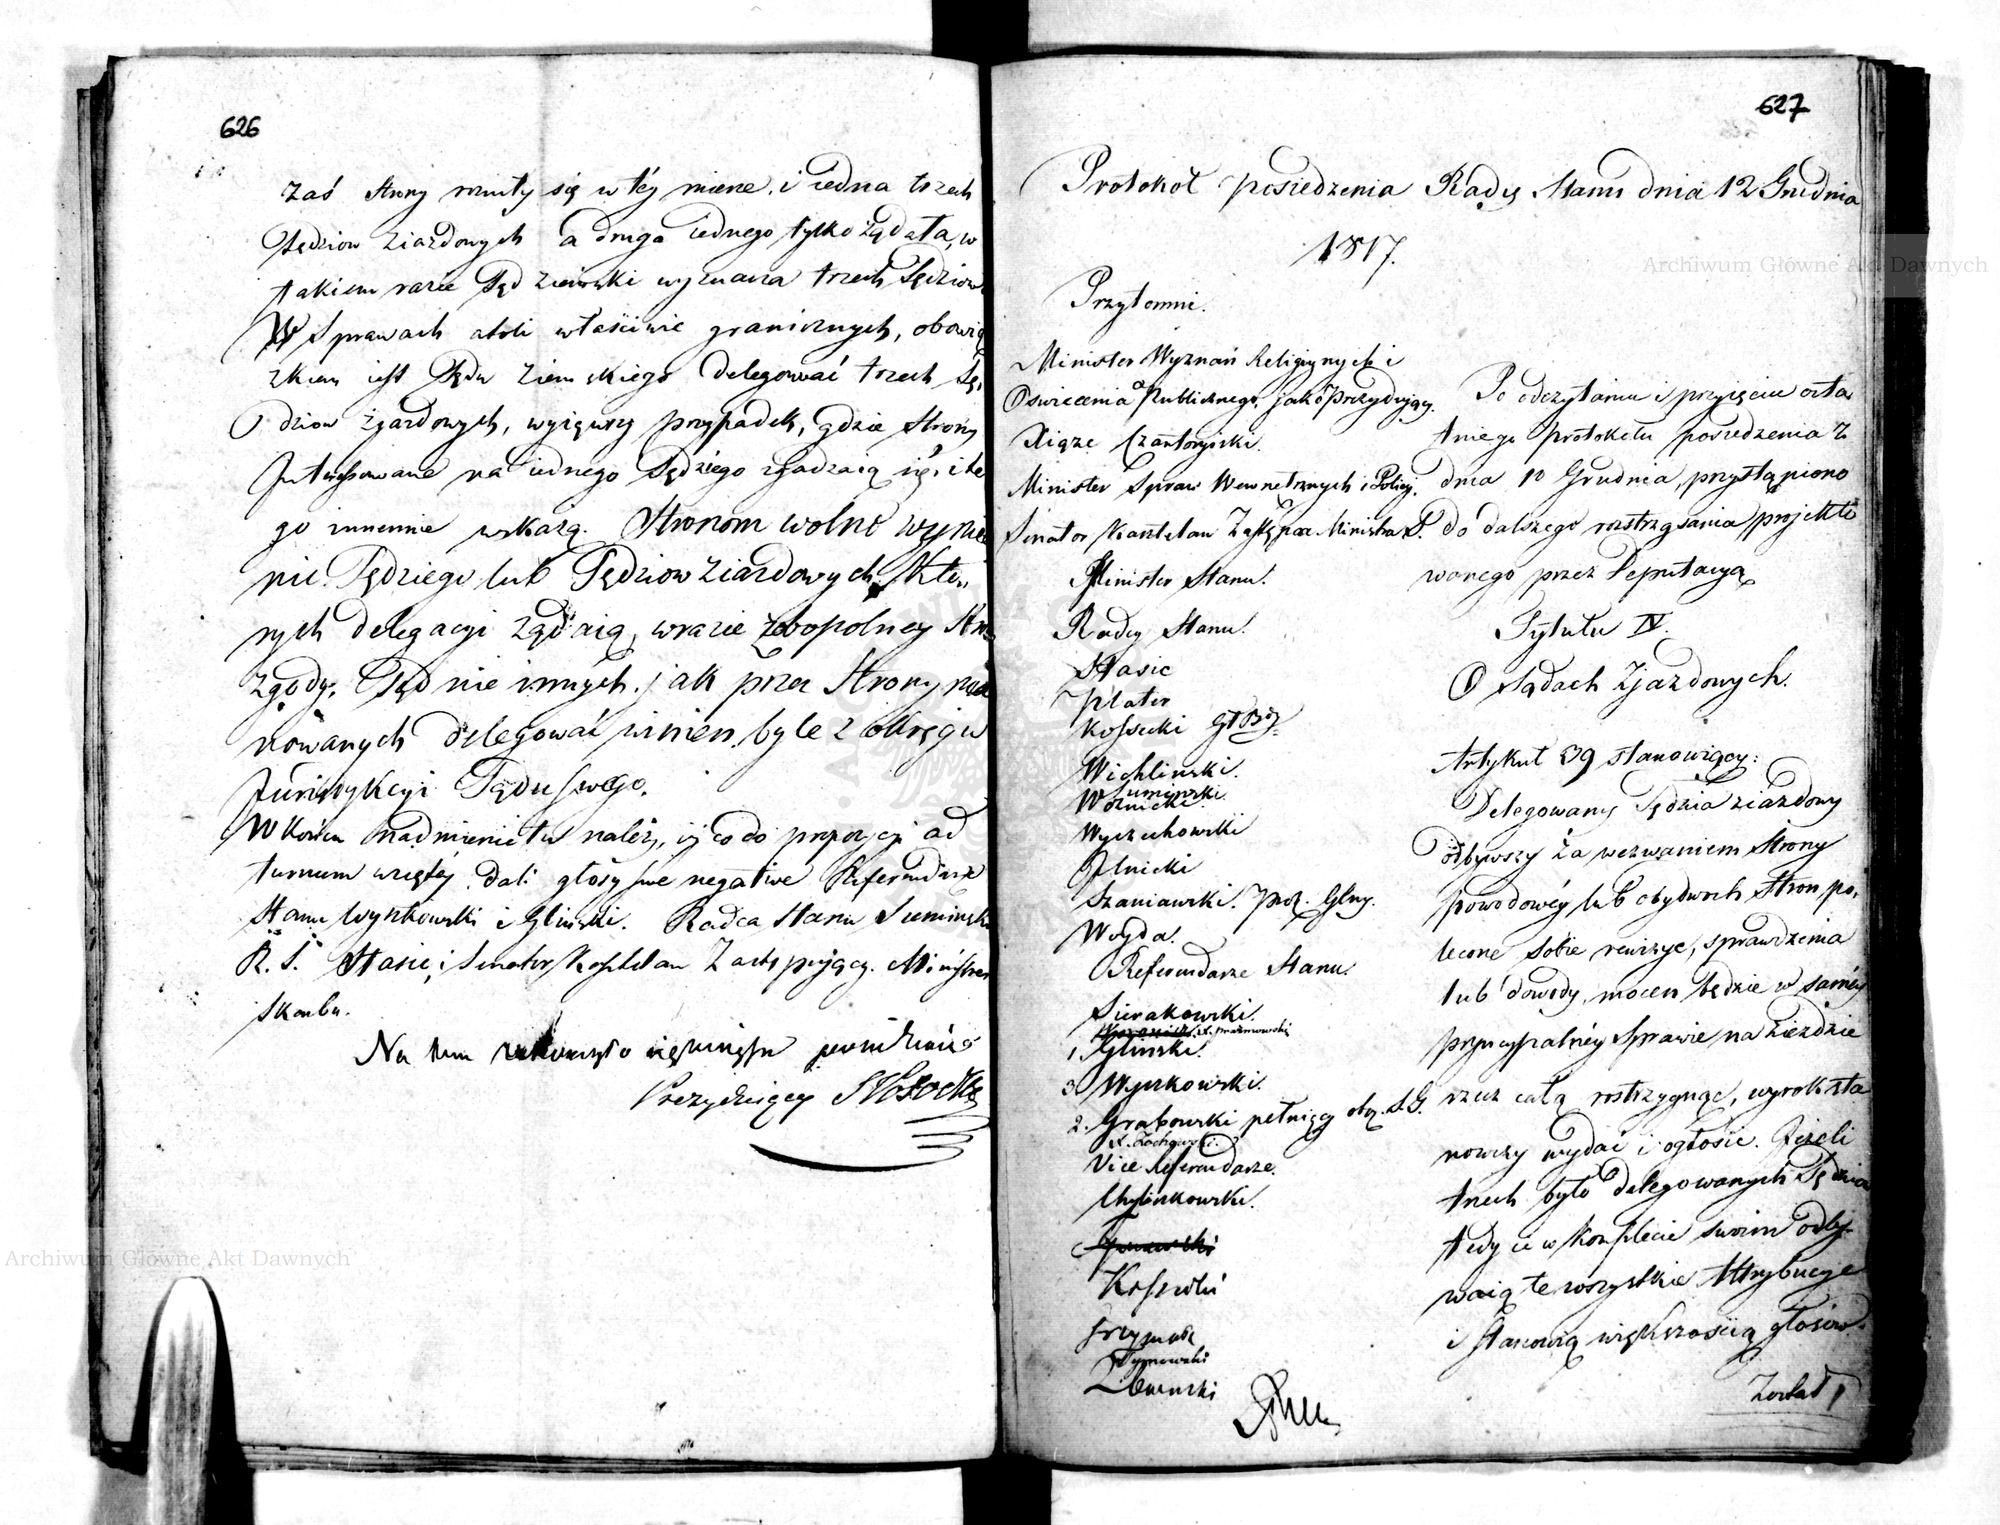 626
zaś Strony rożniły się w téy mierze, i iedna trzech
Sędziow Ziazdowych a druga iednego tylko żądała, w
takiem razie Sąd Ziemski wyznacza trzech Sędziow
W Sprawach atoli właściwie granicznych, obowią
zkiem iest Sądu Ziemskiego delegować trzech Sę,
dziow zjazdowych, wyiąwszy przypadek, gdzie Strony
Interessowane na iednego Sędziego zgadzaią się, i te
go imiennie wskażą. Stronom wolno wymie
nić Sędziego lub Sędziow Ziazdowych, Któ,,
rych delegacyi żądaią, w razie zobopolney Stron
zgody, Sąd nie innych jak przez Strony mia
nowanych delegować winien, byle z okręgu
Jurisdykcyi Sądu swego.
W Końcu nadmienić tu należy, iż co do propozycyi ad
turnum wziętéj dali głosy swe negative Referendarze
Stanu Wyczkowski i Gliński. Radca Stanu Suminski
R. S. Stasic, i Senator Kasztelan Zastępujący Ministra
Skarbu.
Na tem zakończyło się ninieysze posiedzenie
Prezyduiący S Potocki
627
Protokoł posiedzenia Rady Stanu dnia 12 Grudnia
1817.
Przytomni.
Minister Wyznań Religiynych i
Oświecenia Publicznego, jako Prezydujący.
Xiąże Czartoryiski.
Minister Spraw Wewnętrznych i Policyi.
Senator Kasztelan Zastępca Ministra P. S.
Minister Stanu.
Radcy Stanu.
Stasic
Plater
Kossecki
Wichlinski.
Suminski.
Woznicki.
Wyczechowski
Ilnicki
Szaniawski. Prok. Glny.
Woyda.
Referendarze Stanu.
Sierakowski.
1. Gliński.
3. Wyczkowski.
2. Grabowski pełniący obow. S. G.
Vice Referendarze.
Chylinkowski.
Kossecki
Tymowski
Po odczytaniu i przyięciu osta
tniego protokołu posiedzenia z
dnia 10 Grudnia, przystąpiono
do dalszego rostrząsania projekto
wanego przez Deputacyą
Tytułu IV.
O Sądach Zjazdowych.
Artykuł 39 stanowiący:
Delegowany Sędzia ziazdowy
odbywszy za wezwaniem Strony
powodowéy lub obydwoch Stron po,
lecone sobie rewizye, sprawdzenia
lub dowody, mocen będzie w saméy
pryncypalnéy Sprawie na Zieździe
rzecz całą rostrzygnąć, wyrok sta
nowczy wydać i ogłosić. Jeżeli
trzech było delegowanych Sędziow
tedy ci w Komplecie swoim odby,,
waią te wszystkie Attrybucye
i stanowią większością głosów.